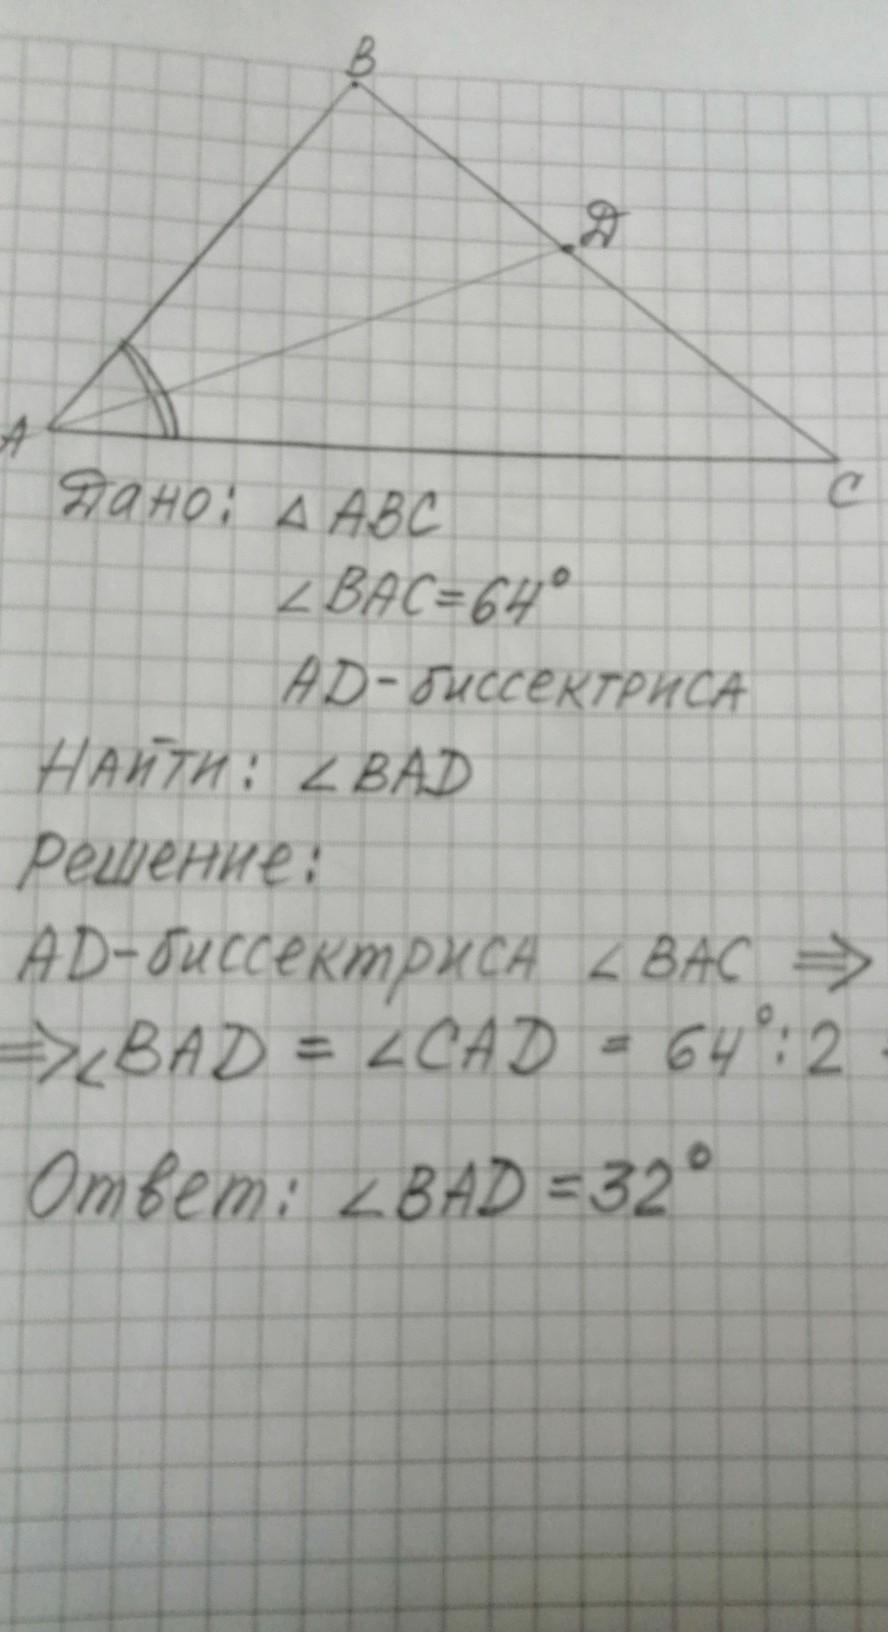 B
Д
A
C
Дано: △ ABC
∠BAC=64°
AD-биссектриса
Найти: ∠BAD
Решение:
AD-биссектриса ∠BAC ⇒
⇒∠BAD = ∠CAD = 64°:2
Ответ: ∠BAD=32°